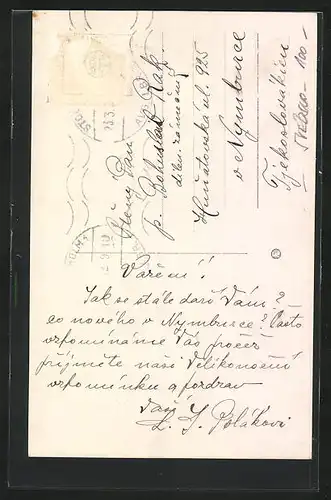 Ctěný Pan
p. Bohuslav Rak.
dílen. zámečný
Husitovská ul. 925
v Nymburce
Tjekoslovakien
100-
Vážení!
Jak se stále daří Vám?
co nového v Nymburce? Často
vzpomínáme Vás pročež
přijměte naši Velikonoční
vzpomínku a pozdrav
Vaši
L. J. Polákovi